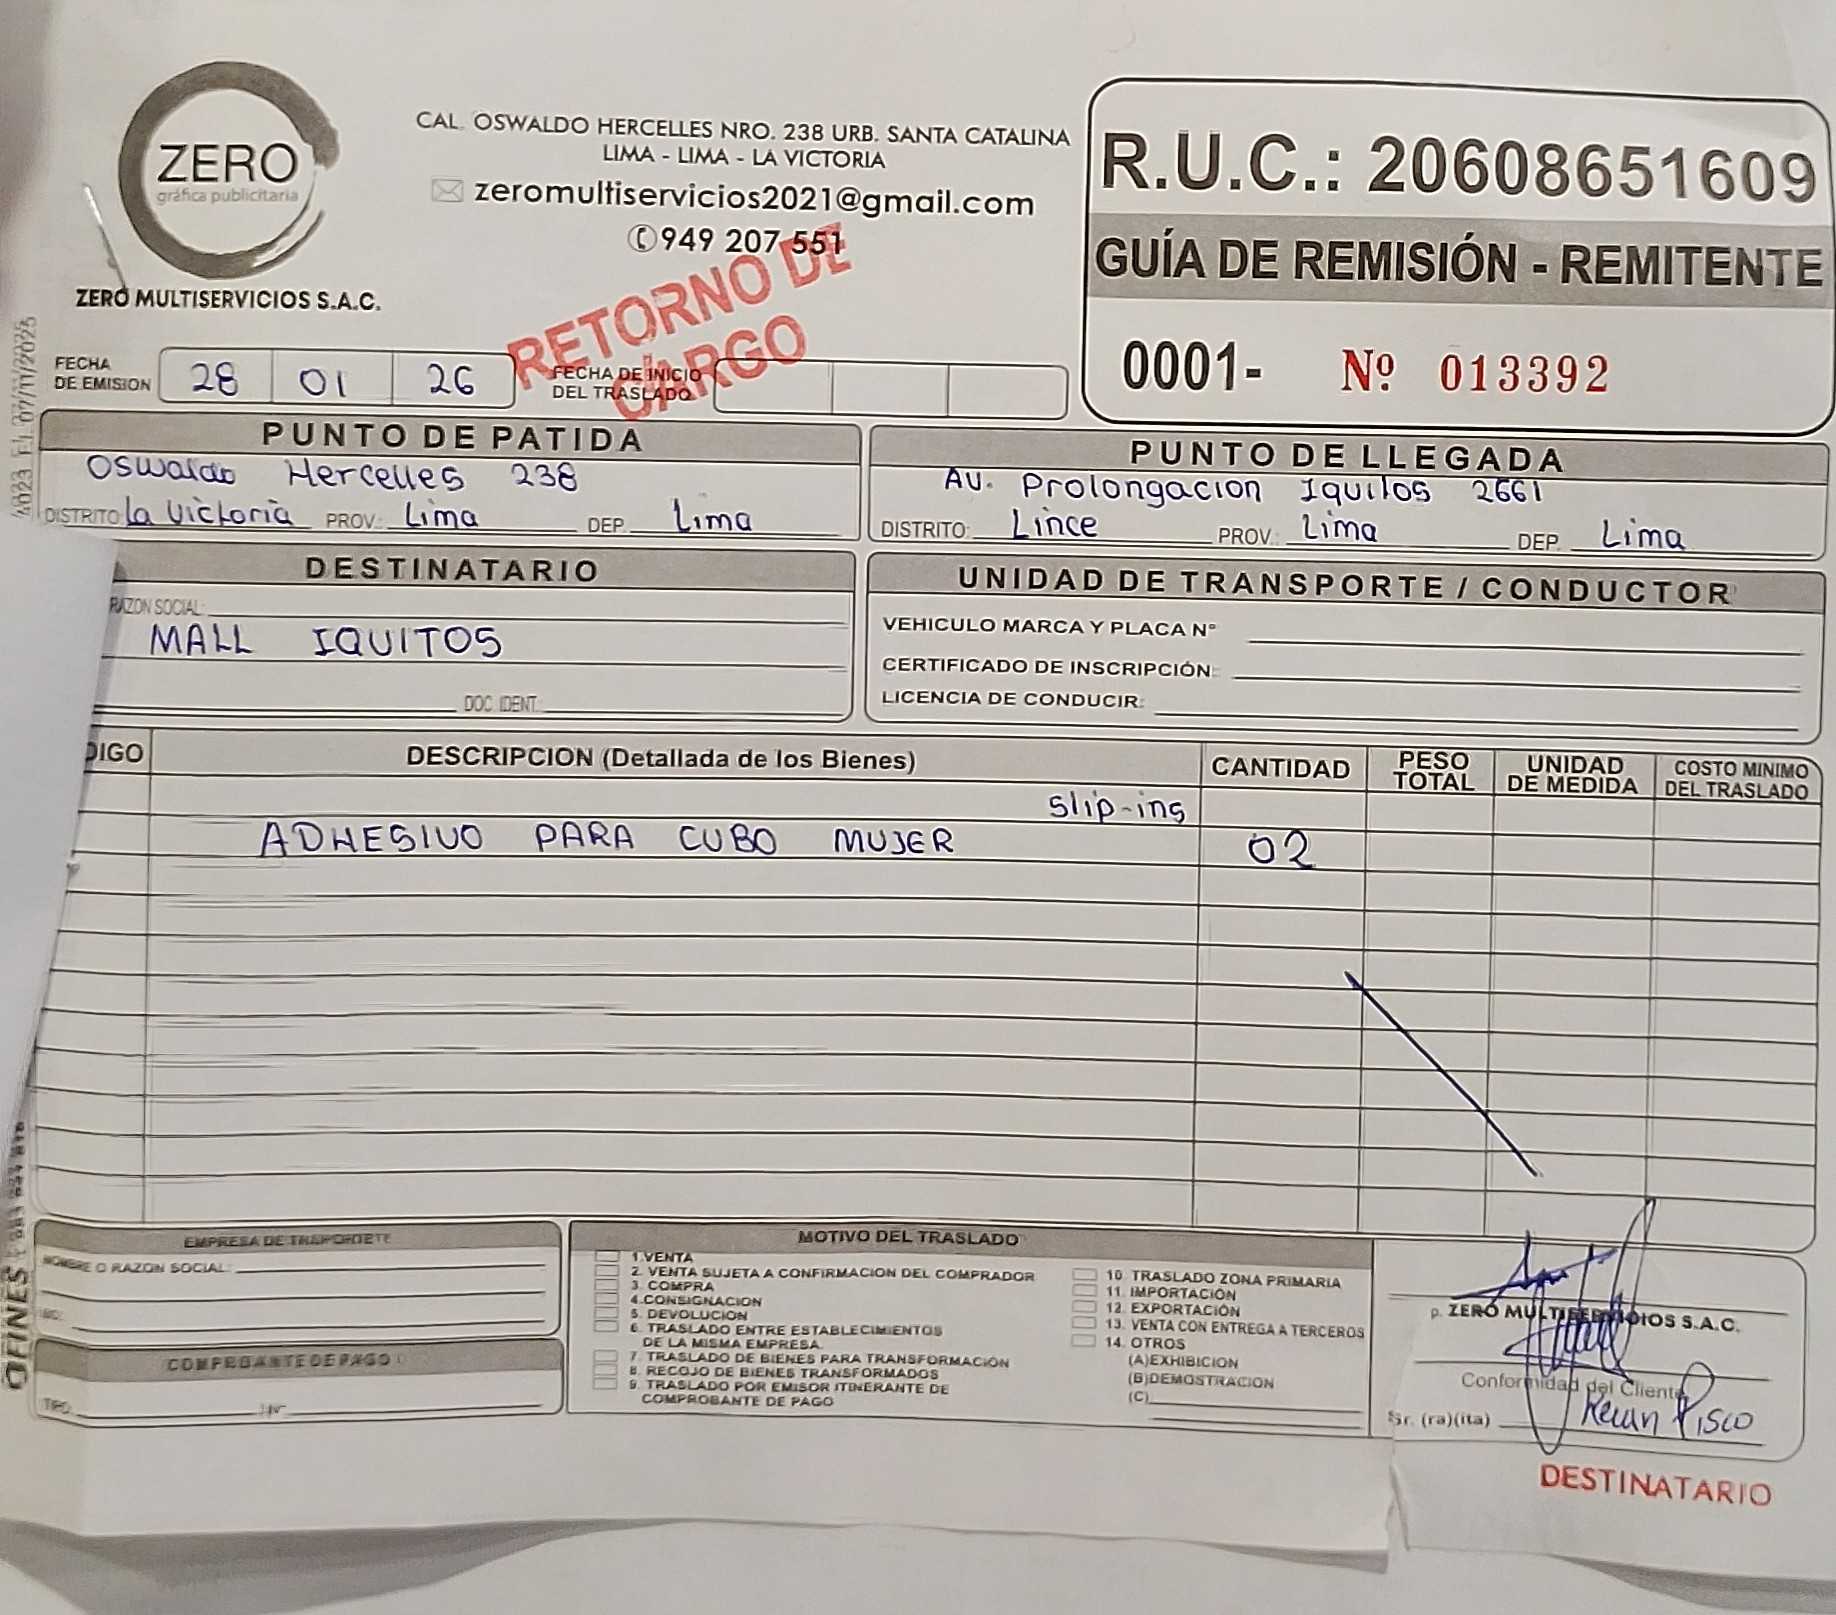 ZERO
gráfica publicitaria
ZERO MULTISERVICIOS S.A.C.
CAL. OSWALDO HERCELLES NRO. 238 URB. SANTA CATALINA
LIMA - LIMA - LA VICTORIA
zeromultiservicios2021@gmail.com
949 207 551
RETORNO DE
CARGO
R.U.C.: 20608651609
GUÍA DE REMISIÓN - REMITENTE
0001- Nº 013392
FECHA
DE EMISION 28 01 26
FECHA DE INICIO
DEL TRASLADO
PUNTO DE PATIDA
Oswaldo Hercelles 238
DISTRITO: La Victoria PROV.: Lima DEP. Lima
PUNTO DE LLEGADA
Av. Prolongacion Iquitos 2661
DISTRITO: Lince PROV.: Lima DEP. Lima
DESTINATARIO
RAZON SOCIAL:
MALL IQUITOS
DOC IDENT.
UNIDAD DE TRANSPORTE / CONDUCTOR
VEHICULO MARCA Y PLACA N°
CERTIFICADO DE INSCRIPCIÓN:
LICENCIA DE CONDUCIR:
DIGO DESCRIPCION (Detallada de los Bienes) CANTIDAD PESO TOTAL UNIDAD DE MEDIDA COSTO MINIMO DEL TRASLADO
Slip-ins
ADHESIVO PARA CUBO MUJER 02
EMPRESA DE TRAPORDETE
NOMBRE O RAZON SOCIAL:
COMPROBANTE DE PAGO
TIPO: Nº
MOTIVO DEL TRASLADO
1.VENTA
2. VENTA SUJETA A CONFIRMACION DEL COMPRADOR
3. COMPRA
4.CONSIGNACION
5. DEVOLUCION
6. TRASLADO ENTRE ESTABLECIMIENTOS
DE LA MISMA EMPRESA.
7. TRASLADO DE BIENES PARA TRANSFORMACIÓN
8. RECOJO DE BIENES TRANSFORMADOS
9. TRASLADO POR EMISOR ITINERANTE DE
COMPROBANTE DE PAGO
10. TRASLADO ZONA PRIMARIA
11. IMPORTACIÓN
12. EXPORTACIÓN
13. VENTA CON ENTREGA A TERCEROS
14. OTROS
(A)EXHIBICION
(B)DEMOSTRACION
(C)
p. ZERO MULTISERVICIOS S.A.C.
Conformidad del Cliente
Sr. (ra)(ita) Pisco
DESTINATARIO